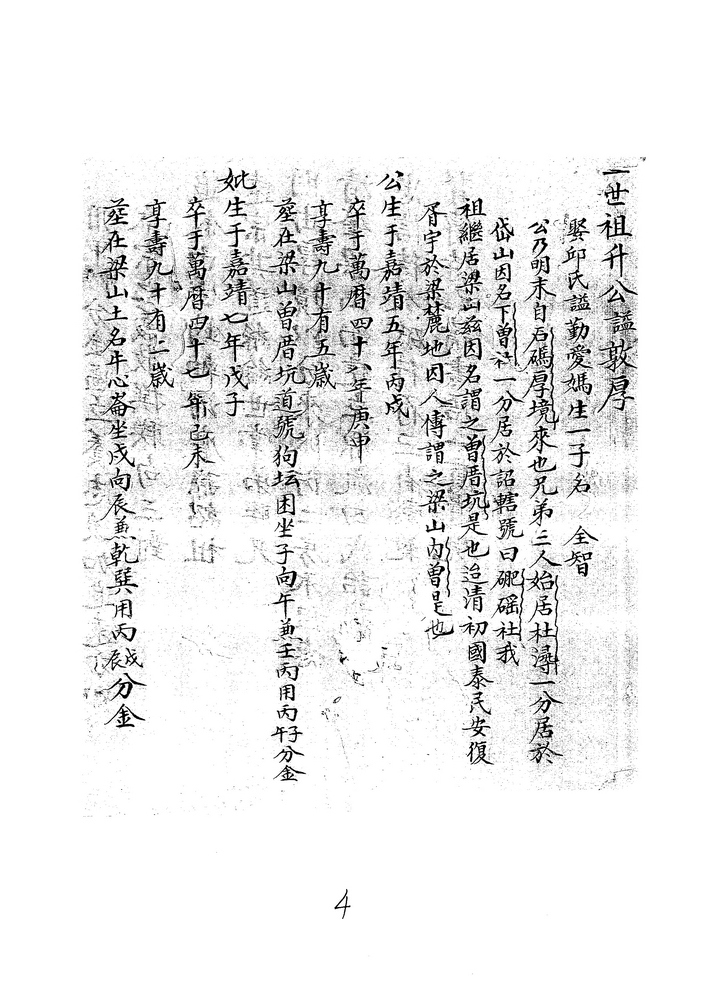 一世祖升公諡敦厚
娶邱氏諡勤愛媽生一子名 全智
公乃明末自后碼厚境來也兄弟三人始居杜潯一分居於
岱山因名下曾社一分居於詔轄號曰硼磘社我
祖繼居梁山茲因名謂之曾厝坑是也迨清初國泰民安復
胥宇於梁麓地因人傳謂之梁山內曾是也
公生于嘉靖五年丙戌
卒于萬曆四十八年庚申
享壽九十有五歲
葬在梁山曾厝坑道號狗坛困坐子向午兼壬丙用丙子午分金
妣生于嘉靖七年戊子
卒于萬曆四十七年己未
享壽九十有二歲
葬在梁山土名牛心崙坐戌向辰兼乾巽用丙戌辰分金
4